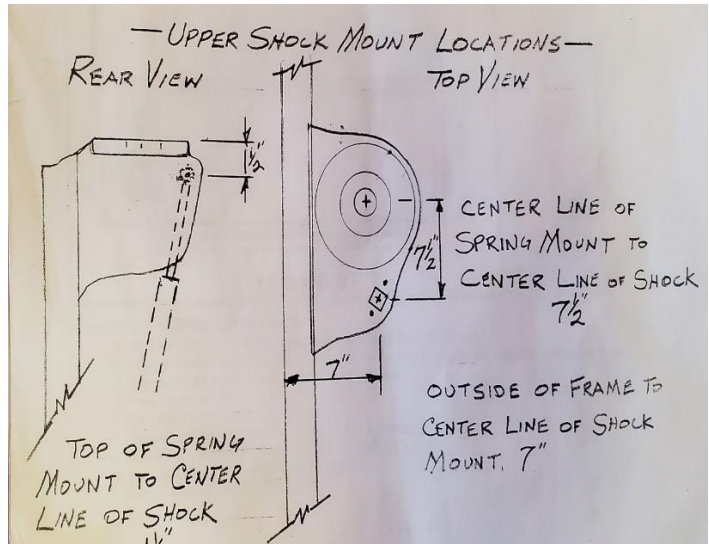 —UPPER SHOCK MOUNT LOCATIONS—
REAR VIEW
TOP VIEW
1/2"
7 1/2"
CENTER LINE OF
SPRING MOUNT TO
CENTER LINE OF SHOCK
7 1/2"
7"
OUTSIDE OF FRAME TO
CENTER LINE OF SHOCK
MOUNT, 7"
TOP OF SPRING
MOUNT TO CENTER
LINE OF SHOCK